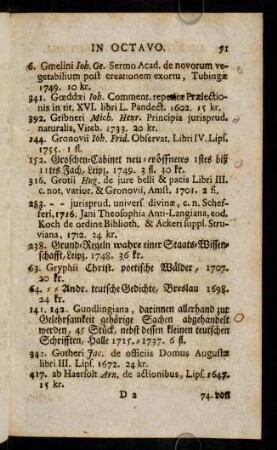 IN OCTAVO. 51
6. Gmelini Ioh. Ge. Sermo Acad. de novorum ve-
getabilium post creationem exortu, Tubingæ
1749. 10 kr.
341. Gœddæi Ioh. Comment. repetitæ Prælectio-
nis in tit. XVI. libri L. Pandect. 1602. 15 kr.
392. Gribneri Mich. Henr. Principia jurisprud.
naturalis, Viteb. 1733. 20 kr.
144. Gronovii Ioh. Frid. Observat. Libri IV. Lips.
1755. 1 fl.
152. Groschen-Cabinet neu-eröffnetes 1stes biß
11tes Fach, Leipz. 1749. 3 fl. 30 kr.
316. Grotii Hug. de jure belli & pacis Libri III.
c. not. varior. & Gronovii, Amst. 1701. 2 fl.
283. - - jurisprud. univers divinæ, c. n. Schef-
feri, 1716. Jani Theosophia Anti-Langiana, eod.
Koch de ordine Biblioth. & Ackeri suppl. Stru-
viana, 1712. 24 kr.
238. Grund-Regeln wahre einer Staats-Wissen-
schafft, Leipz. 1748. 36 kr.
63. Gryphii Christ. poetische Wälder, 1707.
20 kr.
64. - - Andr. teutsche Gedichte, Breslau 1698.
24 kr.
141. 142. Gundlingiana, darinnen allerhand zur
Gelehrsamkeit gehörige Sachen abgehandelt
werden, 45 Stück, nebst dessen kleinen teutschen
Schrifften, Halle 1715.-1737. 6 fl.
342. Gutheri Jac. de officiis Domus Augustæ
libri III. Lips. 1672. 24 kr.
417. ab Haersolt Arn. de actionibus, Lips. 1647.
15 kr.
D 2 74. von